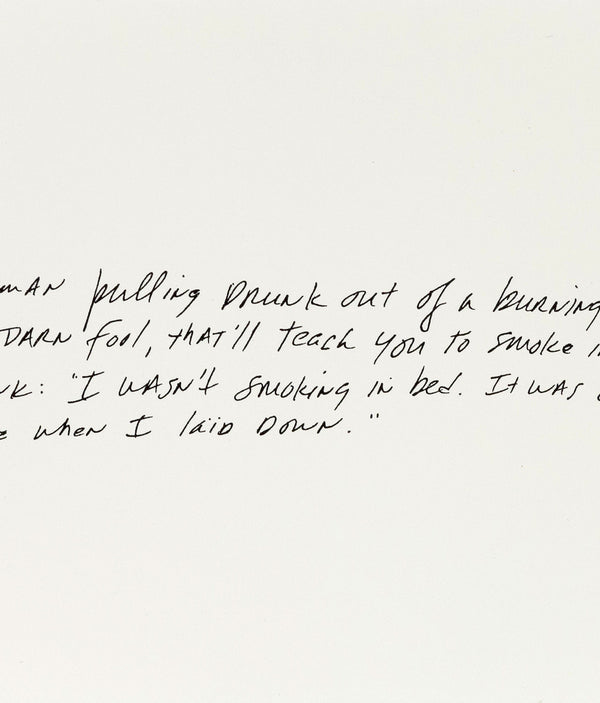 man pulling Drunk out of a burning
DARN fool, that'll teach you to smoke
: "I wasn't smoking in bed. It was
when I laid Down."